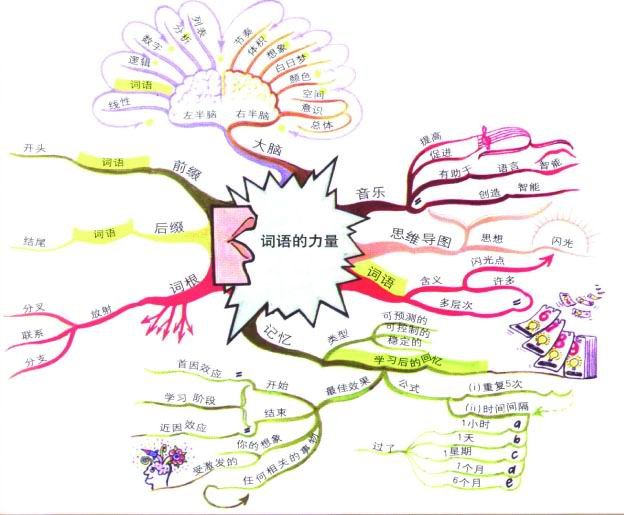 词语的力量
大脑
左半脑
右半脑
线性
词语
逻辑
数字
分析
列表
节奏
体积
想象
白日梦
颜色
空间
意识
总体
音乐
提高
促进
有助于
语言
智能
=
创造
智能
思维导图
思想
闪光
词语
含义
闪光点
许多
多层次
=
前缀
词语
开头
后缀
词语
结尾
词根
放射
分叉
联系
分支
记忆
类型
可预测的
可控制的
稳定的
学习后的回忆
公式
(i)重复5次
(ii)时间间隔
过了
1小时 a
1天 b
1星期 c
1个月 d
6个月 e
最佳效果
开始
=
首因效应
学习 阶段
结束
=
近因效应
你的想象
受激发的
任何相关的事物